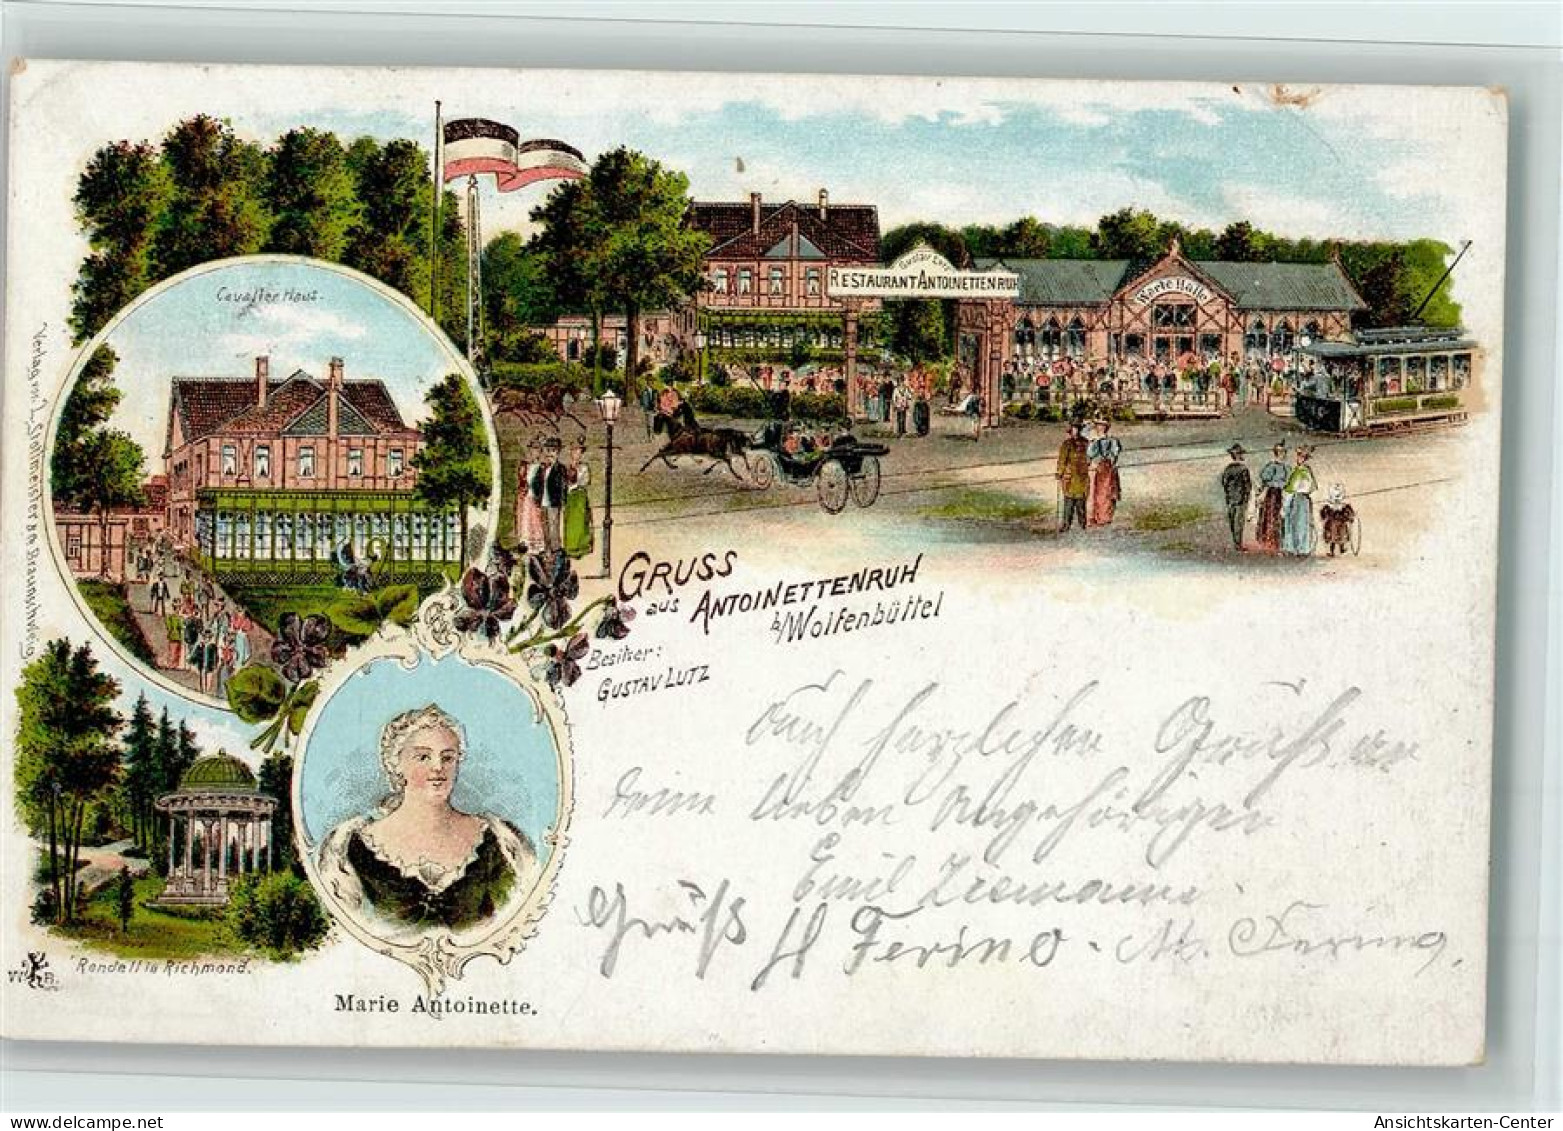 Cavalier Haus.
Gustav Lutz
RESTAURANT ANTOINETTENRUH
Warte Halle
Verlag von
Braunschweig
GRUSS
aus ANTOINETTENRUH
b/Wolfenbüttel
Besitzer:
GUSTAV LUTZ
Auch herzlichen Gruß an
deine lieben Angehörigen
Emil Ziemann
Gruß H Ferino. M. Fering.
Rondell in Richmond.
W B.
Marie Antoinette.
oldthing.de
Ansichtskarten-Center